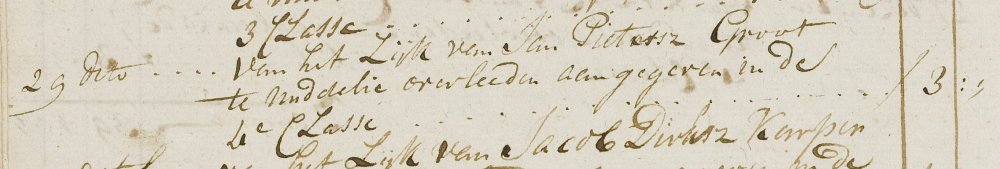 3 Classe
29 dito .... van het Lijk van Jan Pietersz Groot
te middelie overleeden aengegeven in de
4e Classe . . . . . . . . . . . ƒ 3:,
van het Lijk van Jacob Dirksz Kempen
in de